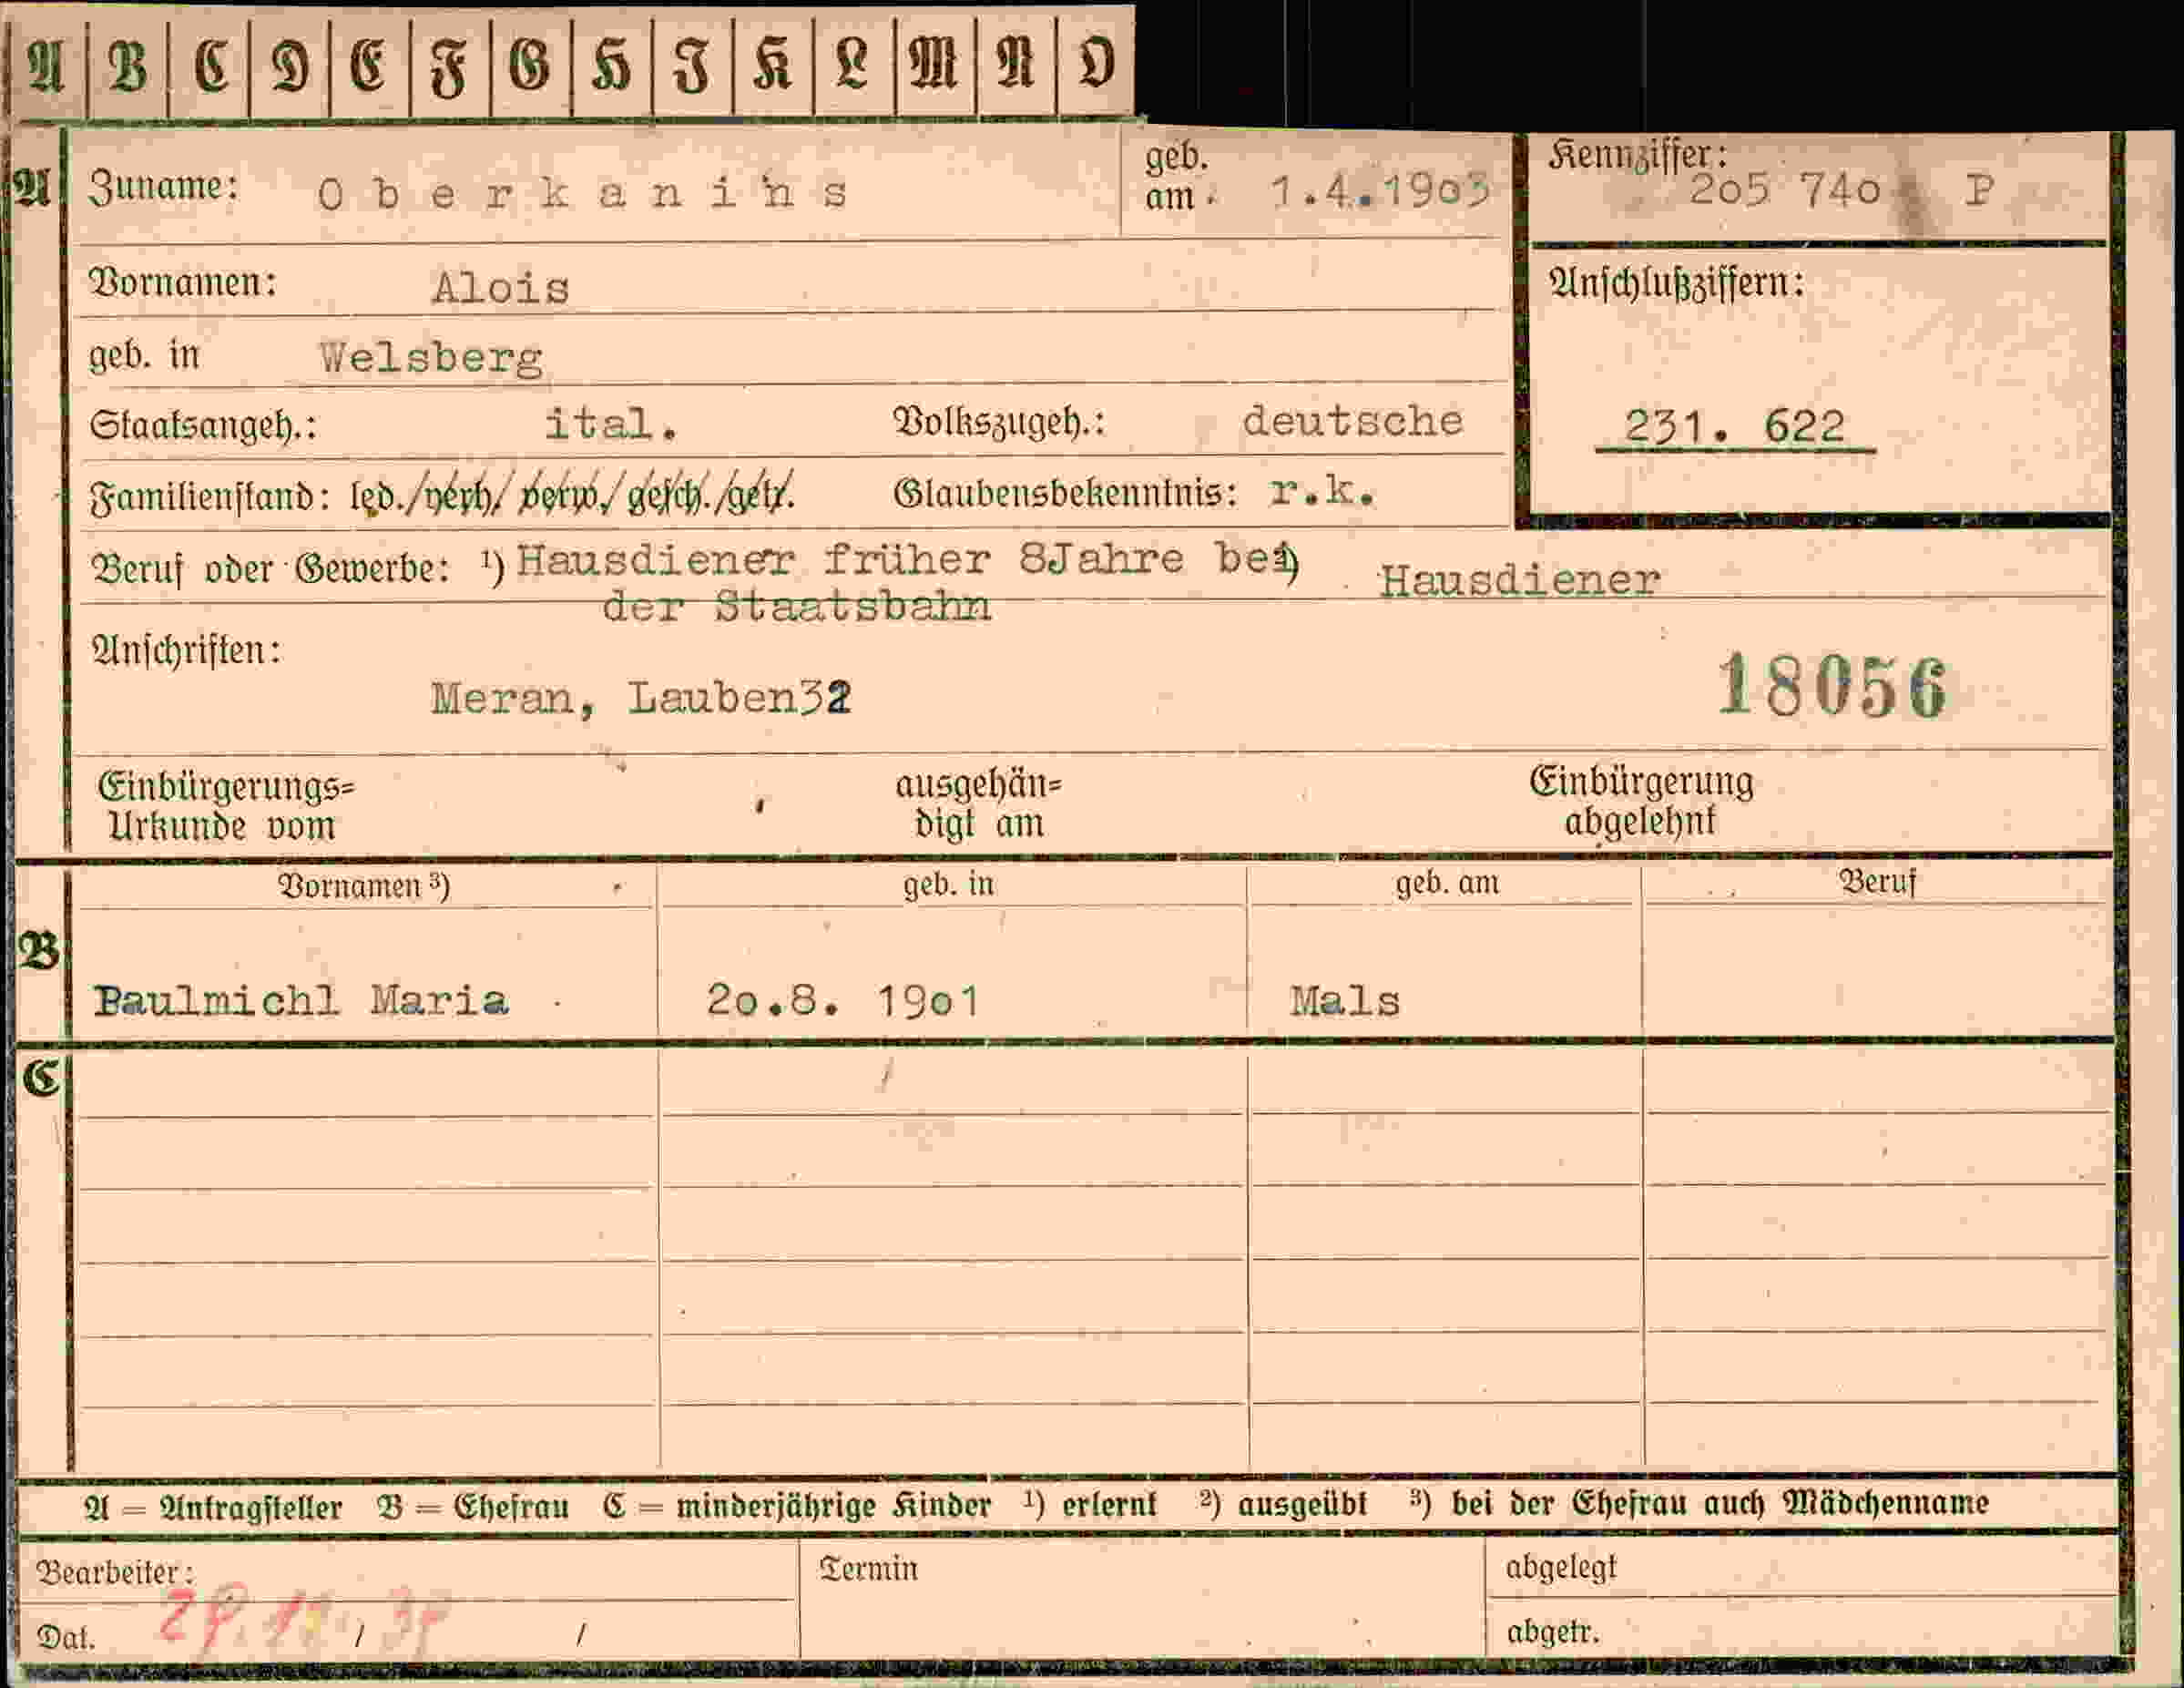 A B C D E F G H I K L M N O
A Zuname: Oberkanins geb. am 1.4.1903 Kennziffer: 205 740 P
Vornamen: Alois Anschlußziffern:
geb. in Welsberg
Staatsangeh.: ital. Volkszugeh.: deutsche 231. 622
Familienstand: led./verh./verw./gesch./getr. Glaubensbekenntnis: r.k.
Beruf oder Gewerbe: ¹) Hausdiener früher 8Jahre bei ²) Hausdiener
der Staatsbahn
Anschriften:
Meran, Lauben32 18056
Einbürgerungs= ausgehän= Einbürgerung
Urkunde vom digt am abgelehnt
Vornamen ³) geb. in geb. am Beruf
B
Paulmichl Maria 20.8. 1901 Mals
C
A = Antragsteller B = Ehefrau C = minderjährige Kinder ¹) erlernt ²) ausgeübt ³) bei der Ehefrau auch Mädchenname
Bearbeiter: Termin abgelegt
Dat. / / abgetr.